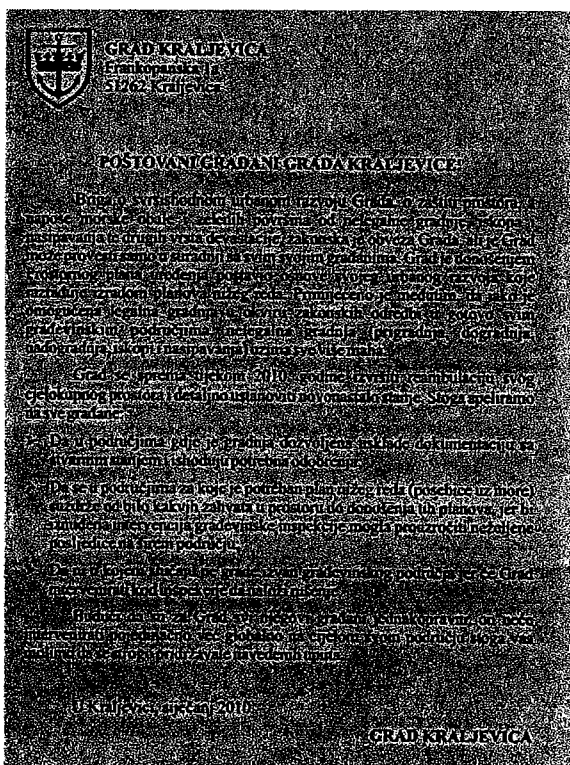 GRAD KRALJEVICA
Frankopanska 1a
51262 Kraljevica
POŠTOVANI GRAĐANI GRADA KRALJEVICE!
Briga o svrsishodnom urbanom razvoju Grada, o zaštiti prostora, a
napose morske obale i zelenih površina od nelegalne gradnje, iskopa i
nasipavanja te drugih vrsta devastacije, zakonska je obveza Grada, ali je Grad
može provesti samo u suradnji sa svim svojim građanima. Grad je donošenjem
Prostornog plana uređenja postavio osnove svojeg urbanog razvoja koje
razrađuje izradom planova nižeg reda. Primijećeno je međutim, da iako je
omogućena legalna gradnja u okviru zakonskih odredbi u gotovo svim
građevinskim područjima, nelegalna gradnja (prigradnja, dogradnja,
nadogradnja, iskopi i nasipavanja) uzima sve više maha.
Grad se sprema tijekom 2010. godine izvršiti reambulaciju svog
cjelokupnog prostora i detaljno ustanoviti novonastalo stanje. Stoga apeliramo
na sve građane:
Da u područjima gdje je gradnja dozvoljena usklade dokumentaciju sa
stvarnim stanjem i ishoduju potrebna odobrenja;
Da se u područjima za koje je potreban plan nižeg reda (posebice uz more)
suzdrže od bilo kakvih zahvata u prostoru do donošenja tih planova, jer bi
iznuđena intervencija građevinske inspekcije mogla prouzročiti neželjene
posljedice na širem području;
Da ni u kojem slučaju ne grade izvan građevinskog područja jer će Grad
intervenirati kod inspekcije da naloži rušenje.
Budući da su za Grad svi njegovi građani jednakopravni, on neće
intervenirati pojedinačno već globalno na cijelom svom području stoga vas
molimo da se strogo pridržavate navedenih uputa.
U Kraljevici, siječanj 2010.
GRAD KRALJEVICA